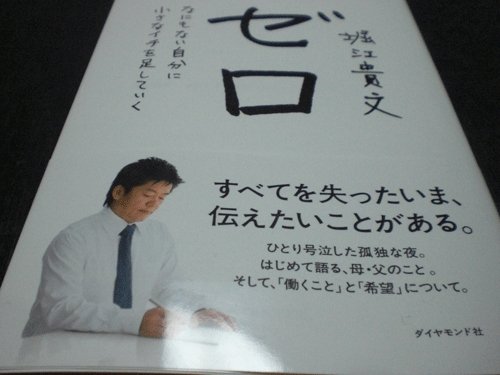 ゼロ
なにもない自分に
小さなイチを足していく
堀江貴文
すべてを失ったいま、
伝えたいことがある。
ひとり号泣した孤独な夜。
はじめて語る、母・父のこと。
そして、「働くこと」と「希望」について。
ダイヤモンド社